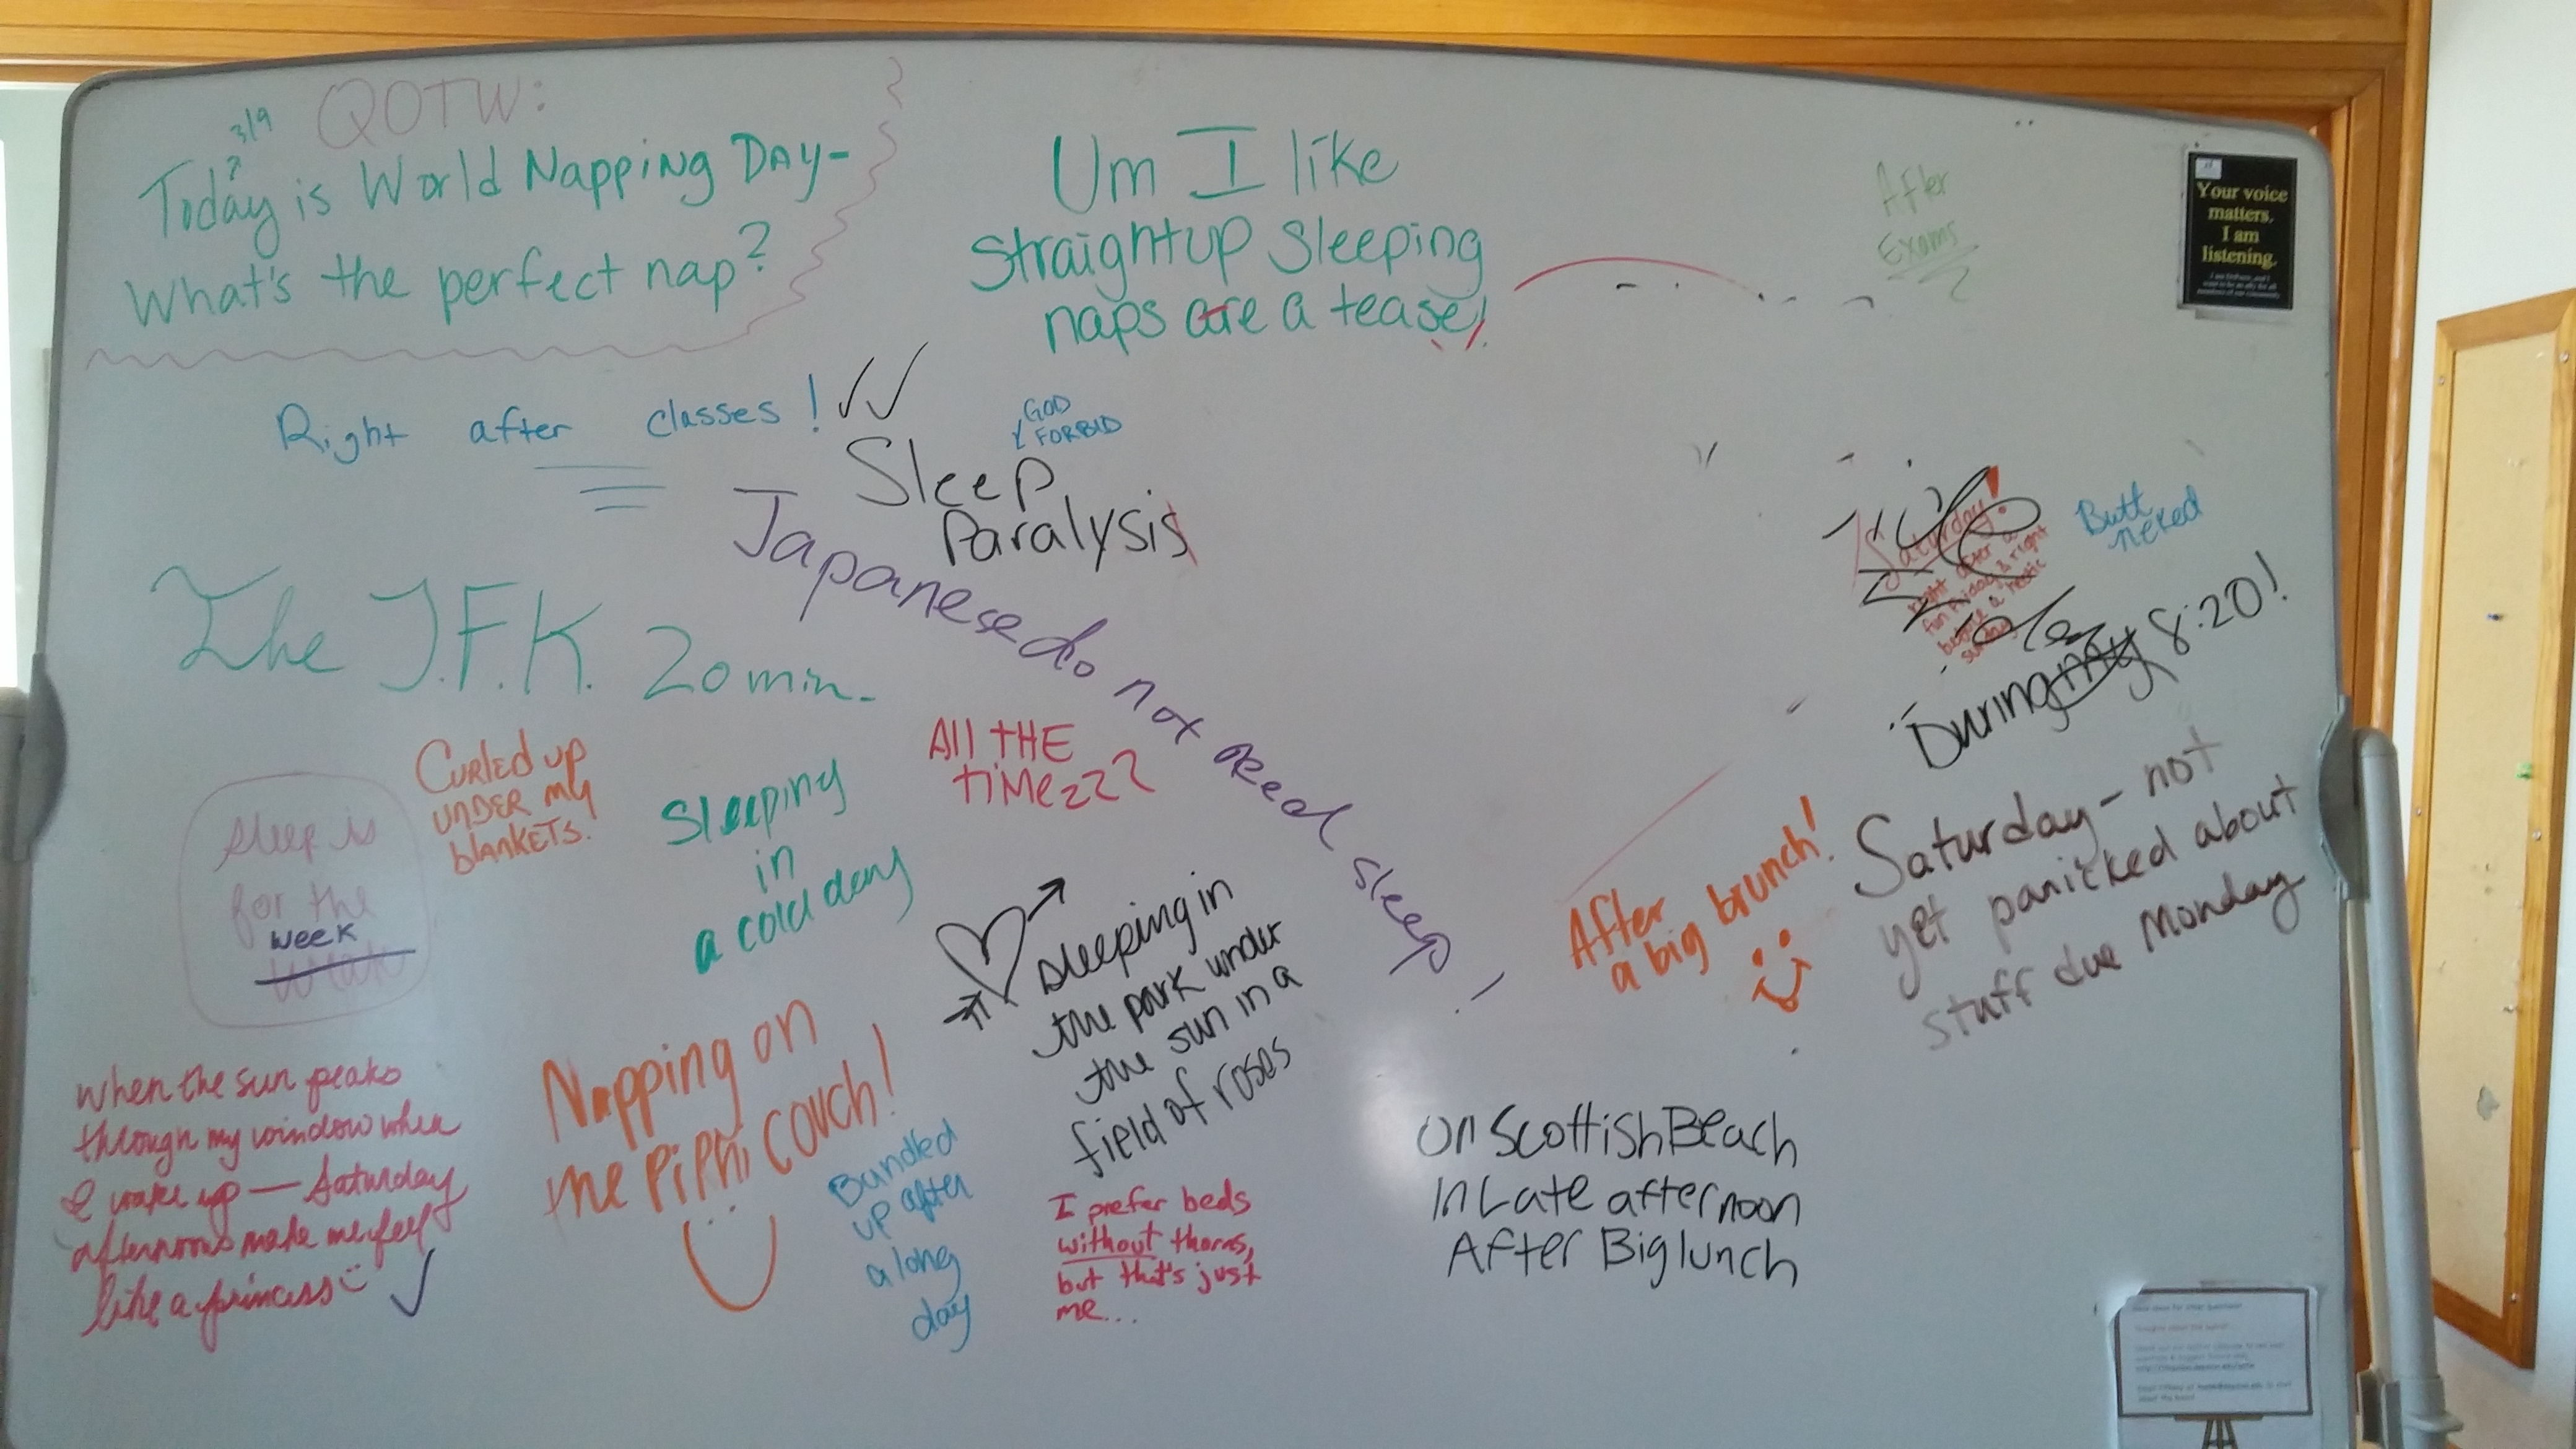 QOTW:
3/9
Today is World Napping Day-
What's the perfect nap?
Um I like
straight up sleeping
naps are a tease!
After
Exams
Your voice
matters.
I am
listening.
Right after classes!
GOD
FORBID
Sleep
Paralysis
Japanese do not need sleep!
The J.F.K. 20 min.
Saturday!
right after a
fun Friday & right
before a hectic
Butt
neked
During my 8:20!
Curled up
under my
blankets.
Sleeping
in
a cold day
All THE
TiMezzz
Sleep is
for the
week
weak
Sleeping in
the park under
the sun in a
field of roses
After
a big brunch!
Saturday - not
yet panicked about
stuff due Monday
when the sun peaks
through my window when
I wake up — Saturday
afternoons make me feel
like a princess
Napping on
the PiPhi couch!
Bundled
up after
a long
day
I prefer beds
without thorns,
but that's just
me...
On Scottish Beach
In Late afternoon
After Big lunch